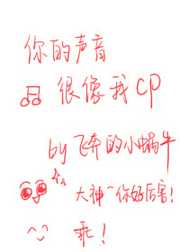 你的声音
很像我CP
by 飞奔的小蜗牛
大神~你好厉害!
乖!